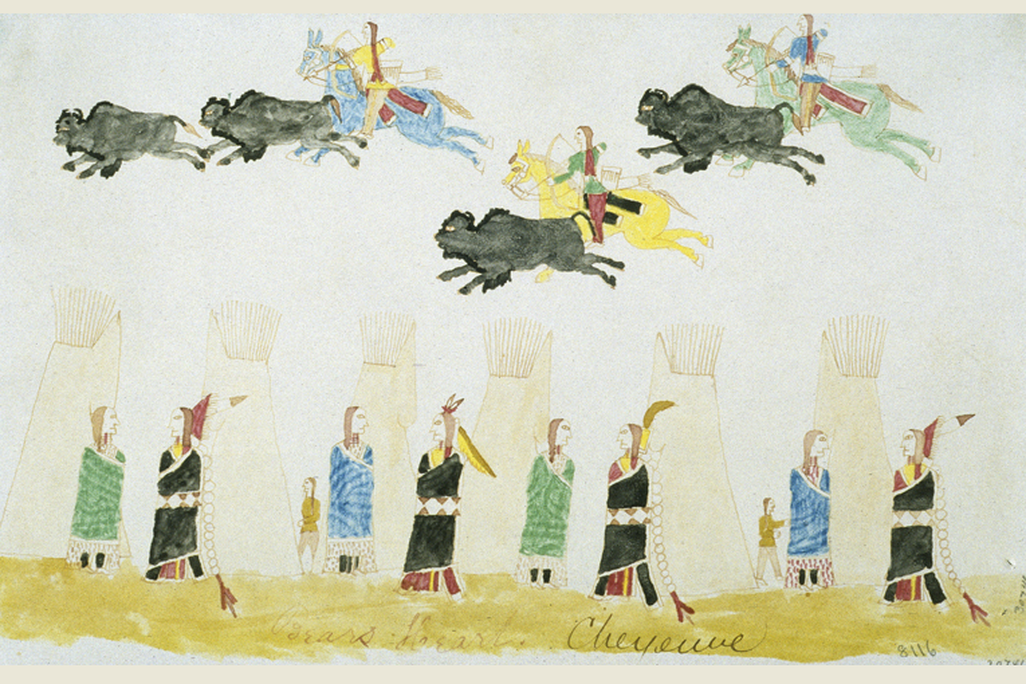 Bears Heart. Cheyenne
8116